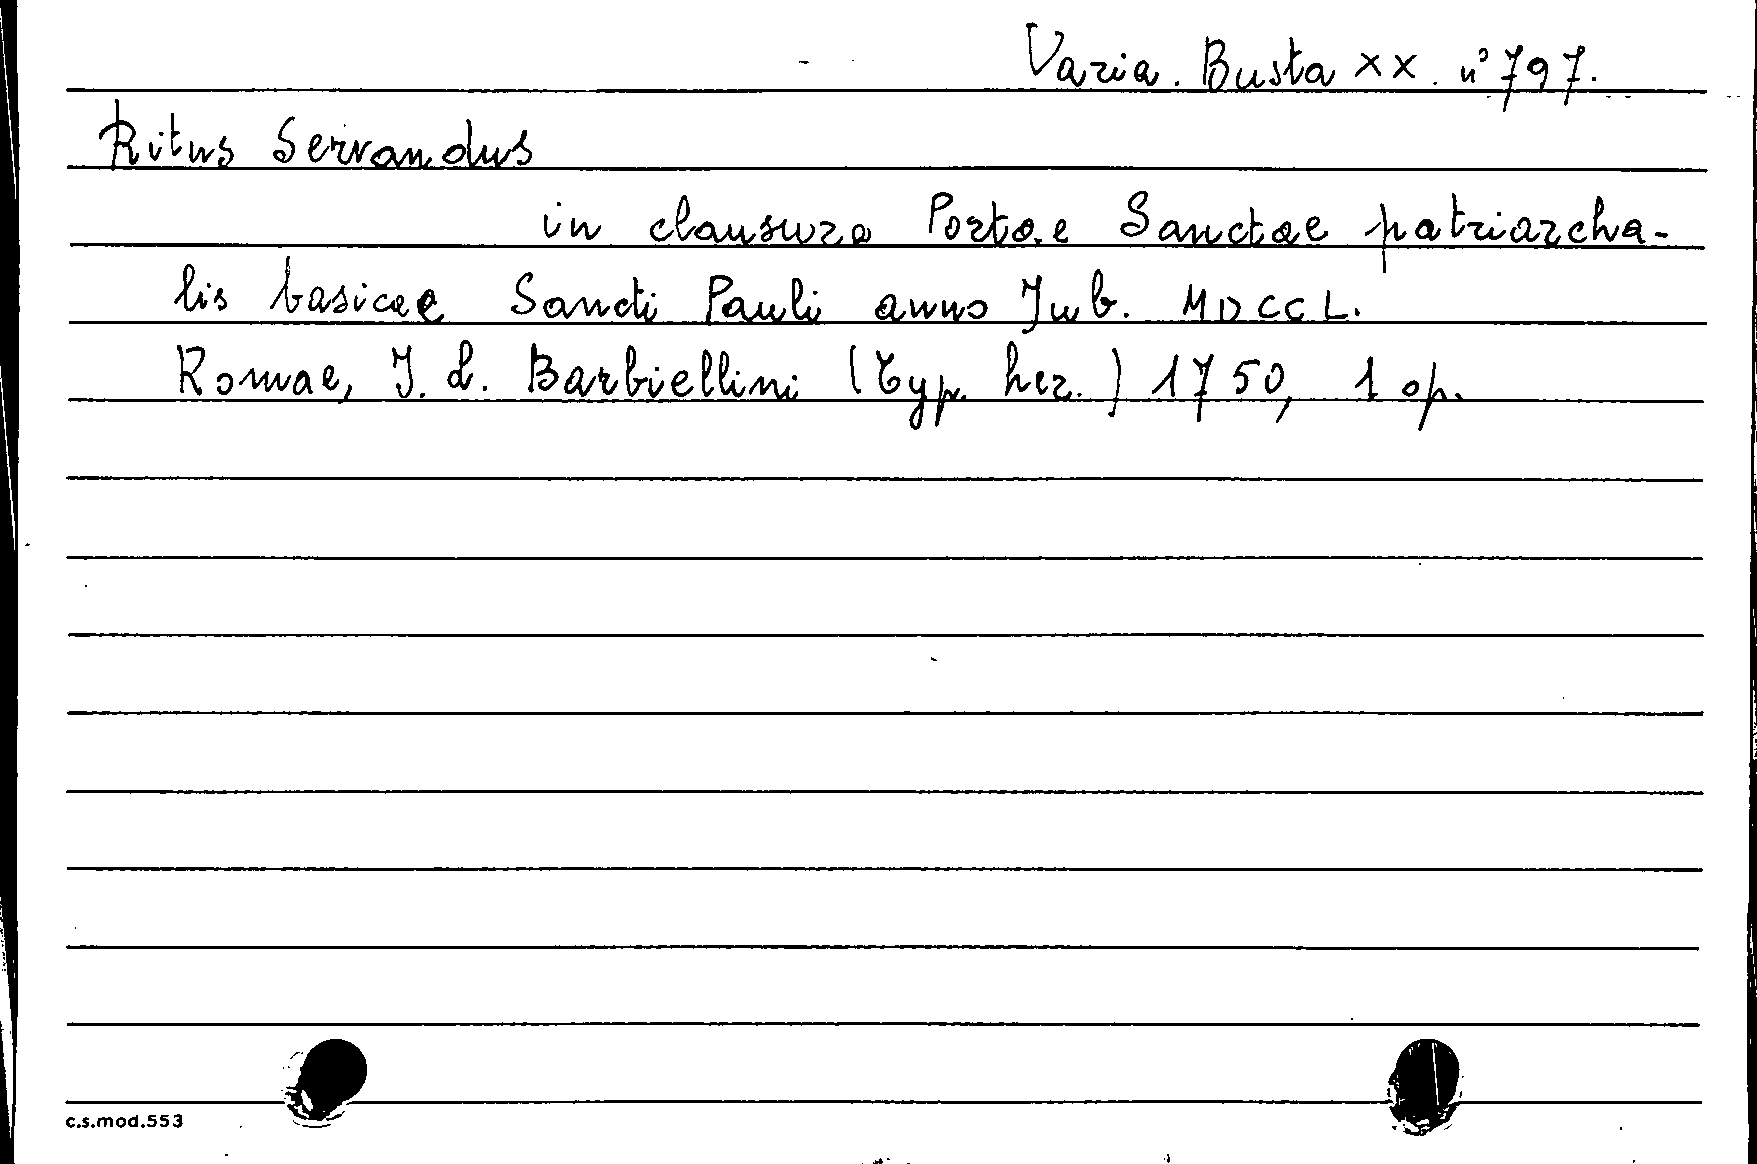 Varia. Busta XX. n° 797.
Ritus Servandus
in clausura Portae Sanctae patriarcha-
lis basicae Sancti Pauli anno Jub. MDCCL.
Romae, J. L. Barbiellini (Typ. her.) 1750, 1 op.
c.s.mod.553